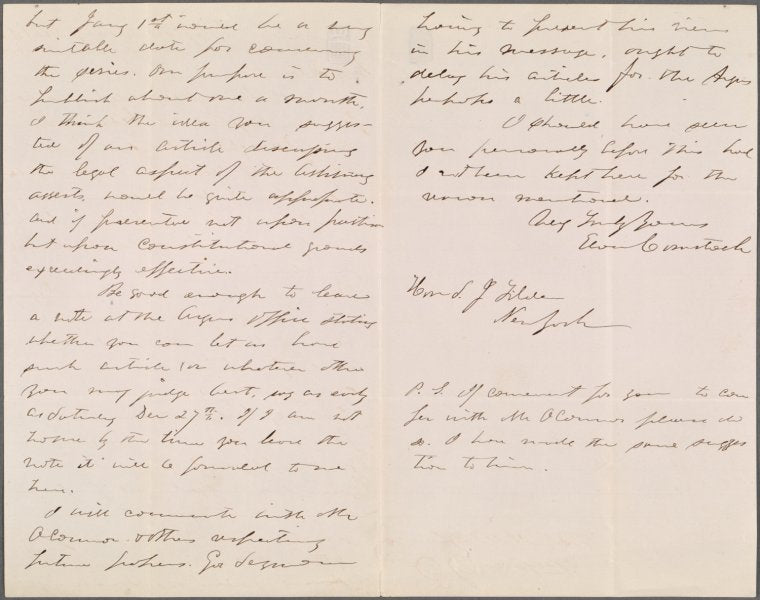 but Jany 1st would be a very
suitable date for commencing
the series. Our purpose is to
publish about one a month.
I think the idea you sugges-
ted of an article discussing
the legal aspect of the arbitrary
arrests would be quite appropriate.
and if presented not upon partisan
but upon constitutional grounds
exceedingly effective.
Be good enough to leave
a note at the Argus office stating
whether you can let us have
such article or whatever other
you may judge best, say as early
as Saturday Dec 27th. If I am not
home by the time you leave the
note it will be forwarded to me
here.
I will communicate with Mr
OConnor & others respecting
future papers. Gov Seymour
having to present his views
in his message, ought to
delay his articles for the Argus
perhaps a little.
I should have seen
you personally before this had
I not been kept here for the
reason mentioned.
Very Truly Yours
Elon Comstock
Hon S. J Tilden
New York
P. S. If convenient for you to con
fer with Mr OConnor please do
so. I have made the same sugges
tion to him.